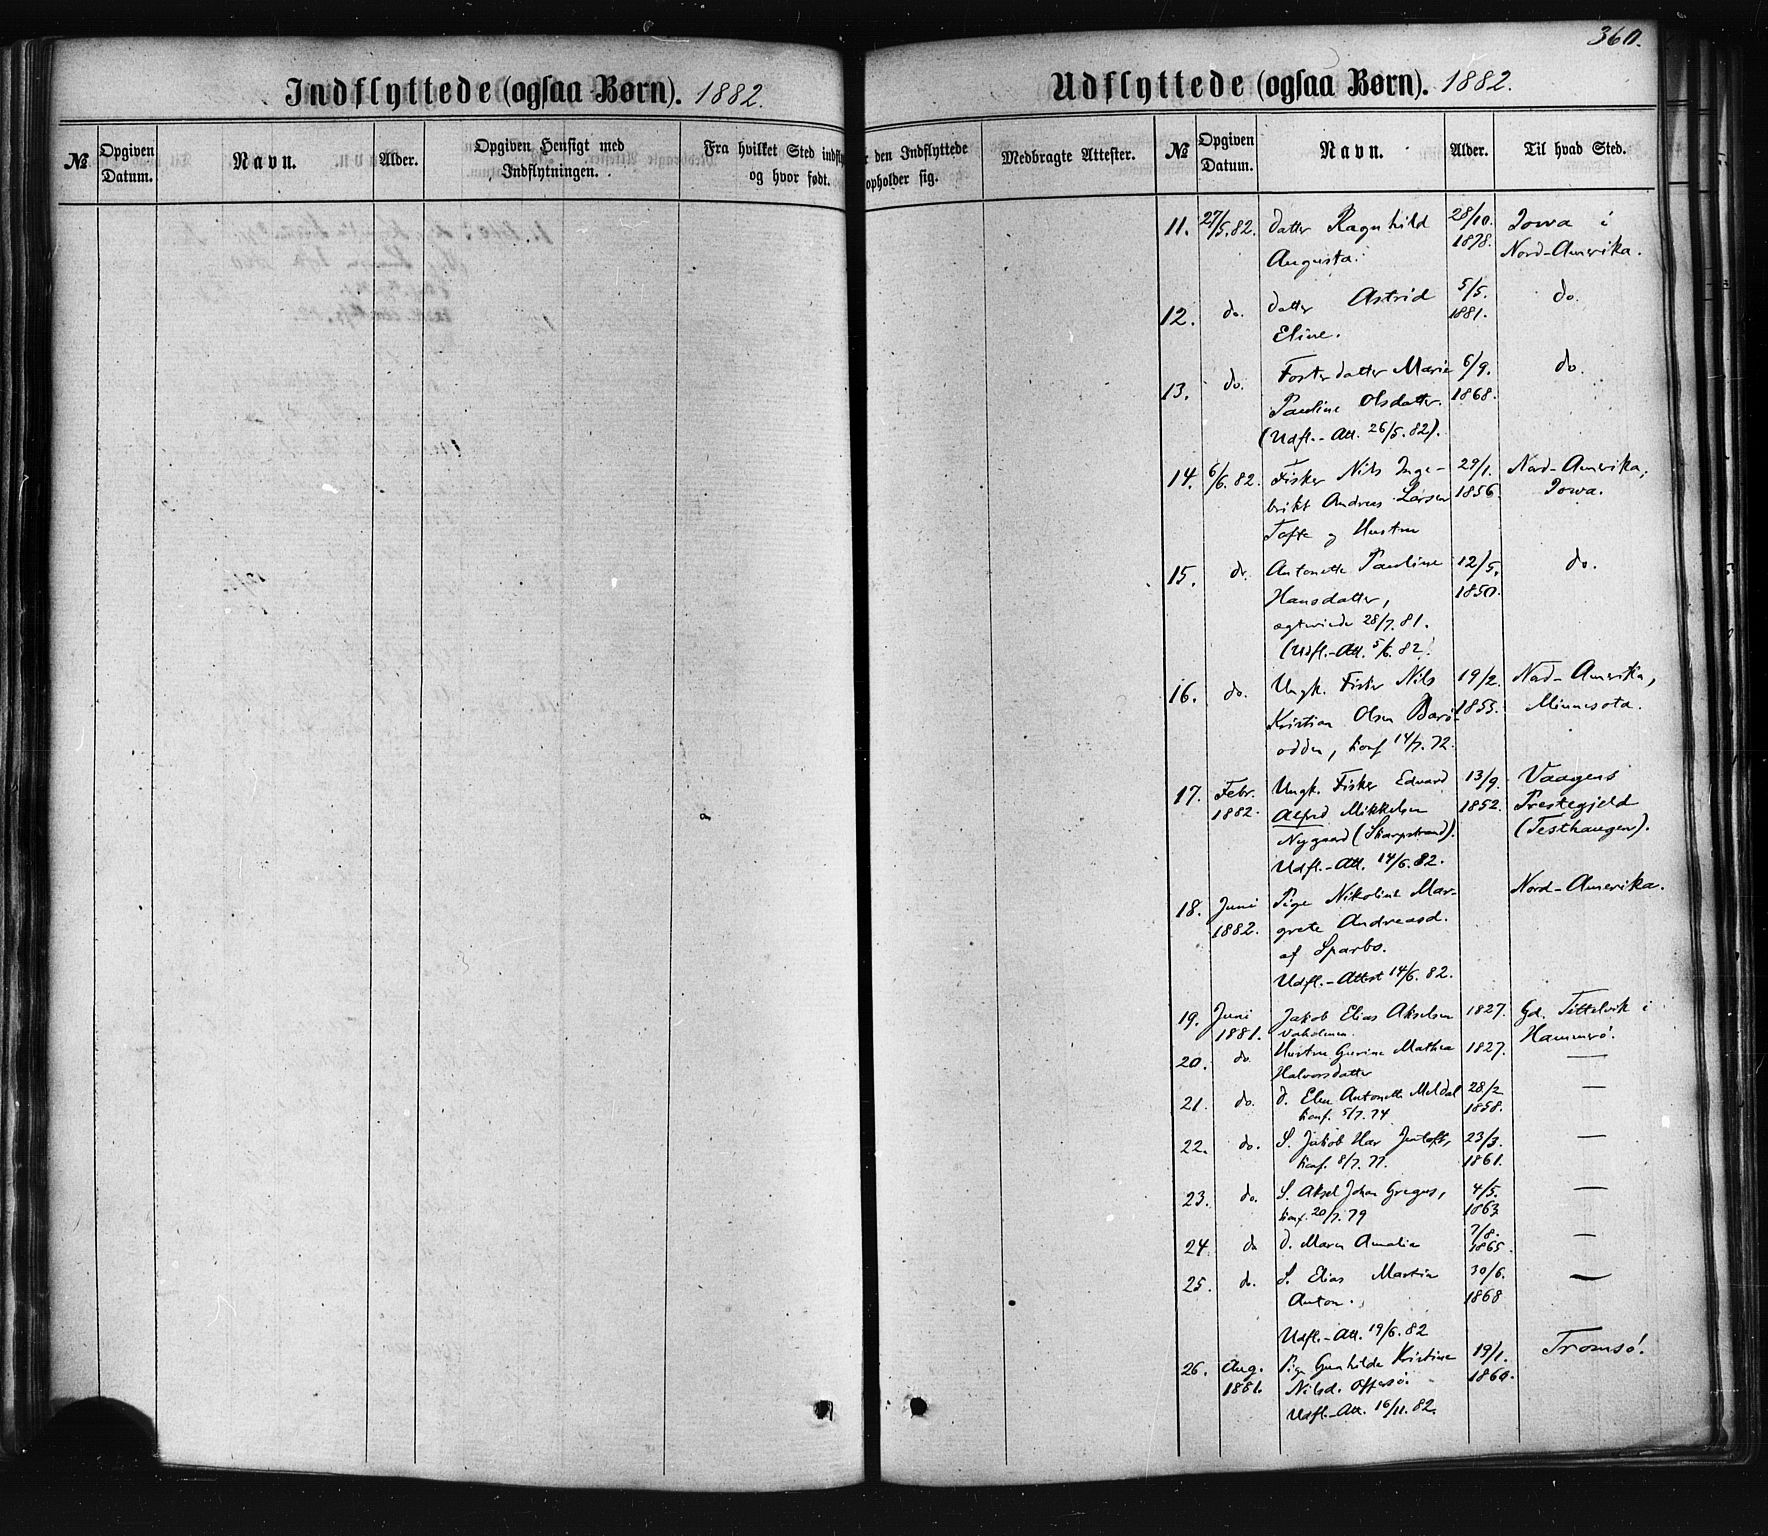 360.
Indflyttede (ogsaa Børn). 1882.
№ Opgiven Datum. Navn. Alder. Opgiven Hensigt med Indflytningen. Fra hvilket Sted indfly
og hvor født.
Udflyttede (ogsaa Børn). 1882.
r den Indflyttede opholder sig. Medbragte Attester. № Opgiven Datum. Navn. Alder. Til hvad Sted.
11. 27/5.82. Datter Ragnhild 28/10. Iowa i
Augusta. 1878. Nord-Amerika.
12. do. Datter Astrid 5/5. do.
Eline. 1881.
13. do. Fosterdatter Marie 6/9. do.
Pauline Olsdatter. 1868.
(Udfl.-Att. 26/5.82).
14. 6/6.82. Fisker Nils Inge- 29/1. Nord-Amerika,
brikt Andreas Larsen 1856. Iowa.
Tofte og Hustru
15. do. Antonette Pauline 12/5. do.
Hansdatter, 1850.
ægteviede 28/7.81.
(Udfl.-Att. 5/6.82).
16. do. Ungk. Fisker Nils 19/2. Nord-Amerika,
Kristian Olsen Barø- 1853. Minnesota.
odden, konf. 14/7.72.
17. Febr. Ungk. Fisker Edvard 13/9. Vaagens
1882. Alfred Mikkelsen 1852. Prestegjeld
Nygaard (Skarpstrand). (Testhaugen).
Udfl.-Att. 14/6.82.
18. Juni Pige Nikoline Mar- Nord-Amerika.
1882. grete Andreasd.
af Sparbo.
Udfl.-Attest 14/6.82.
19. Juni Jakob Elias Akselsen 1827. Gd. Tittelvik i
1881. Hammerø.
20. do. Hustru Gurine Mathea 1827. —
Halvorsdatter
21. do. D. Elen Antonette Meldal 28/2 —
konf. 5/7.74 1858.
22. do. S. Jakob Hav Jentoft, 23/3. —
konf. 8/7.77. 1861.
23. do. S. Aksel Johan Gregus, 4/5. —
konf. 20/7.79 1863
24. do D. Maren Amalie 7/8. 1865. —
25. do. S. Elias Martin 30/6. —
Anton. 1868
Udfl.-Att. 19/6.82
26. Aug. Pige Gunhilda Kristine 19/1. Tromsø.
1881. Nilsd. Offersø. 1860.
Udfl.-Att. 16/11.82.